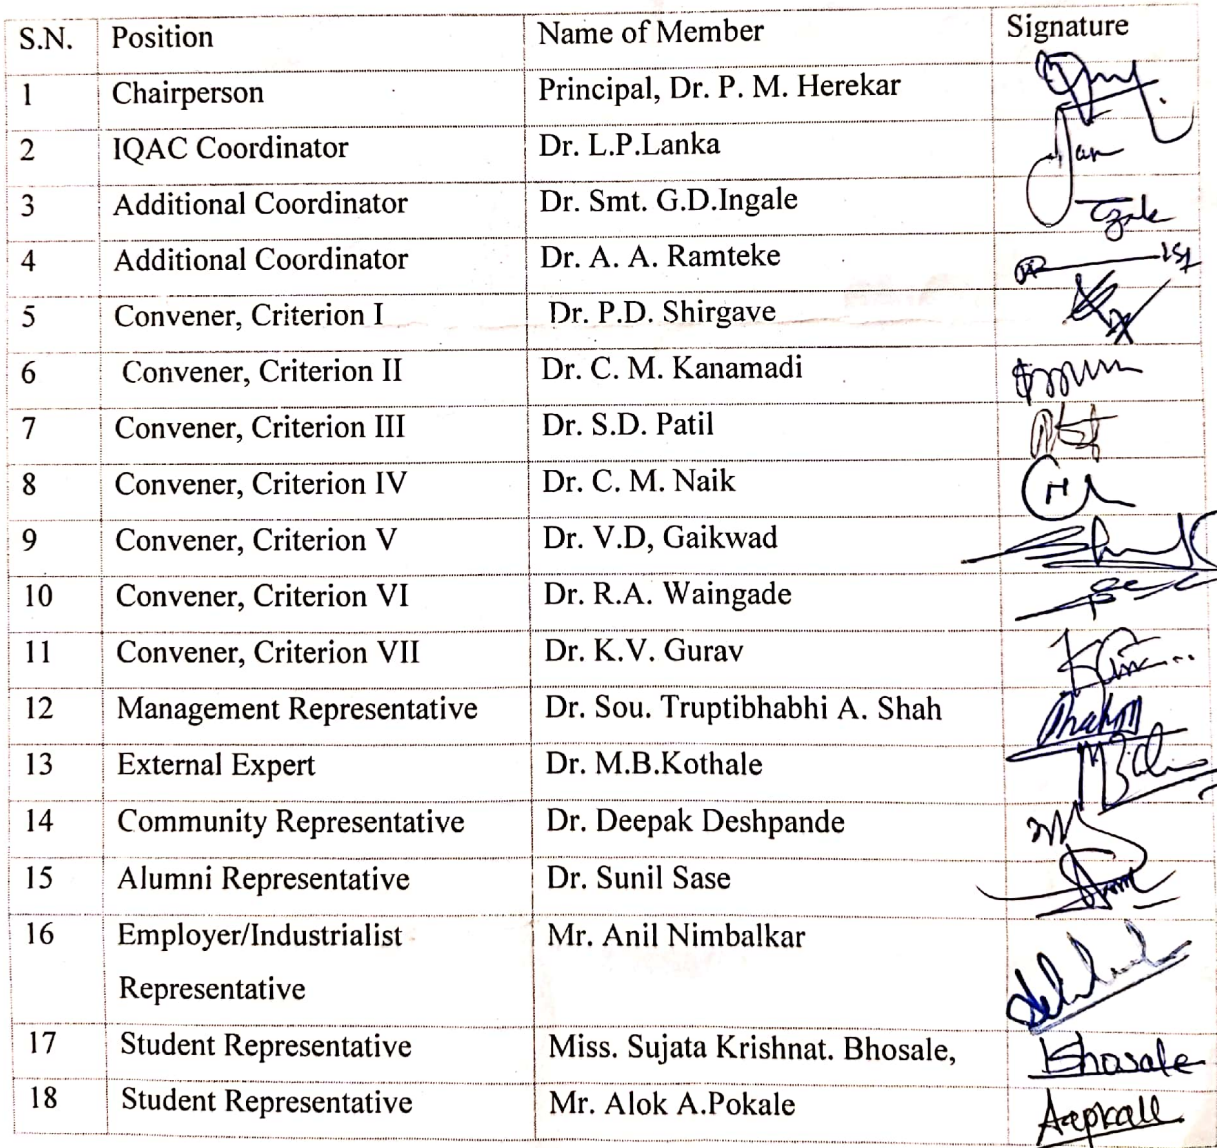 S.N. Position Name of Member Signature
1 Chairperson Principal, Dr. P. M. Herekar
2 IQAC Coordinator Dr. L.P.Lanka
3 Additional Coordinator Dr. Smt. G.D.Ingale
4 Additional Coordinator Dr. A. A. Ramteke
5 Convener, Criterion I Dr. P.D. Shirgave
6 Convener, Criterion II Dr. C. M. Kanamadi
7 Convener, Criterion III Dr. S.D. Patil
8 Convener, Criterion IV Dr. C. M. Naik
9 Convener, Criterion V Dr. V.D, Gaikwad
10 Convener, Criterion VI Dr. R.A. Waingade
11 Convener, Criterion VII Dr. K.V. Gurav
12 Management Representative Dr. Sou. Truptibhabhi A. Shah
13 External Expert Dr. M.B.Kothale
14 Community Representative Dr. Deepak Deshpande
15 Alumni Representative Dr. Sunil Sase
16 Employer/Industrialist Mr. Anil Nimbalkar
Representative
17 Student Representative Miss. Sujata Krishnat. Bhosale, Bhosale
18 Student Representative Mr. Alok A.Pokale